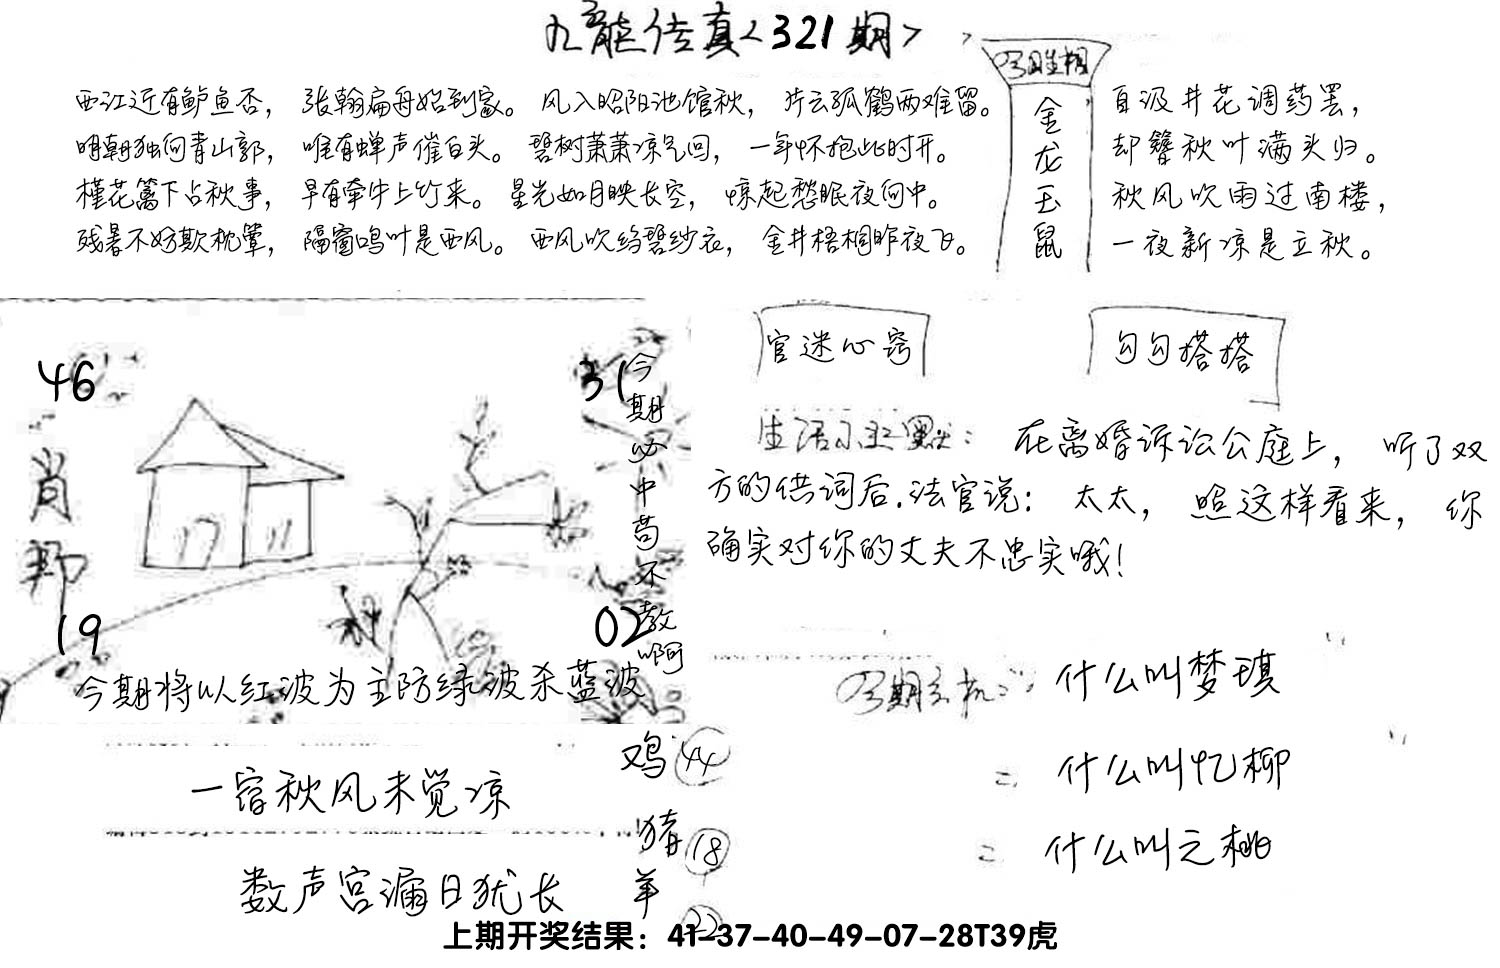 九龙传真<321期>
今日生相
金龙玉鼠
西江近有鲈鱼否，张翰扁舟始到家。风入昭阳池馆秋，片云孤鹤两难留。
明朝独向青山郭，唯有蝉声催白头。碧树萧萧凉气回，一年怀抱此时开。
槿花篱下占秋事，早有牵牛上竹来。星光如月映长空，惊起愁眠夜向中。
残暑不妨欺枕簟，隔窗鸣叶是西风。西风吹绉碧纱衣，金井梧桐昨夜飞。
自汲井花调药罢，
却簪秋叶满头归。
秋风吹雨过南楼，
一夜新凉是立秋。
46
31
肖
19
02
今期必中苟不教啊
今期将以红波为主防绿波杀蓝波
官迷心窍
勾勾搭搭
生活小幽默：在离婚诉讼公庭上，听了双
方的供词后.法官说：太太，照这样看来，你
确实对你的丈夫不忠实哦！
今期玄机：什么叫梦琪
什么叫忆柳
什么叫元桃
一宿秋风未觉凉
数声宫漏日犹长
鸡 44
猪 18
羊 22
上期开奖结果：41-37-40-49-07-28T39虎